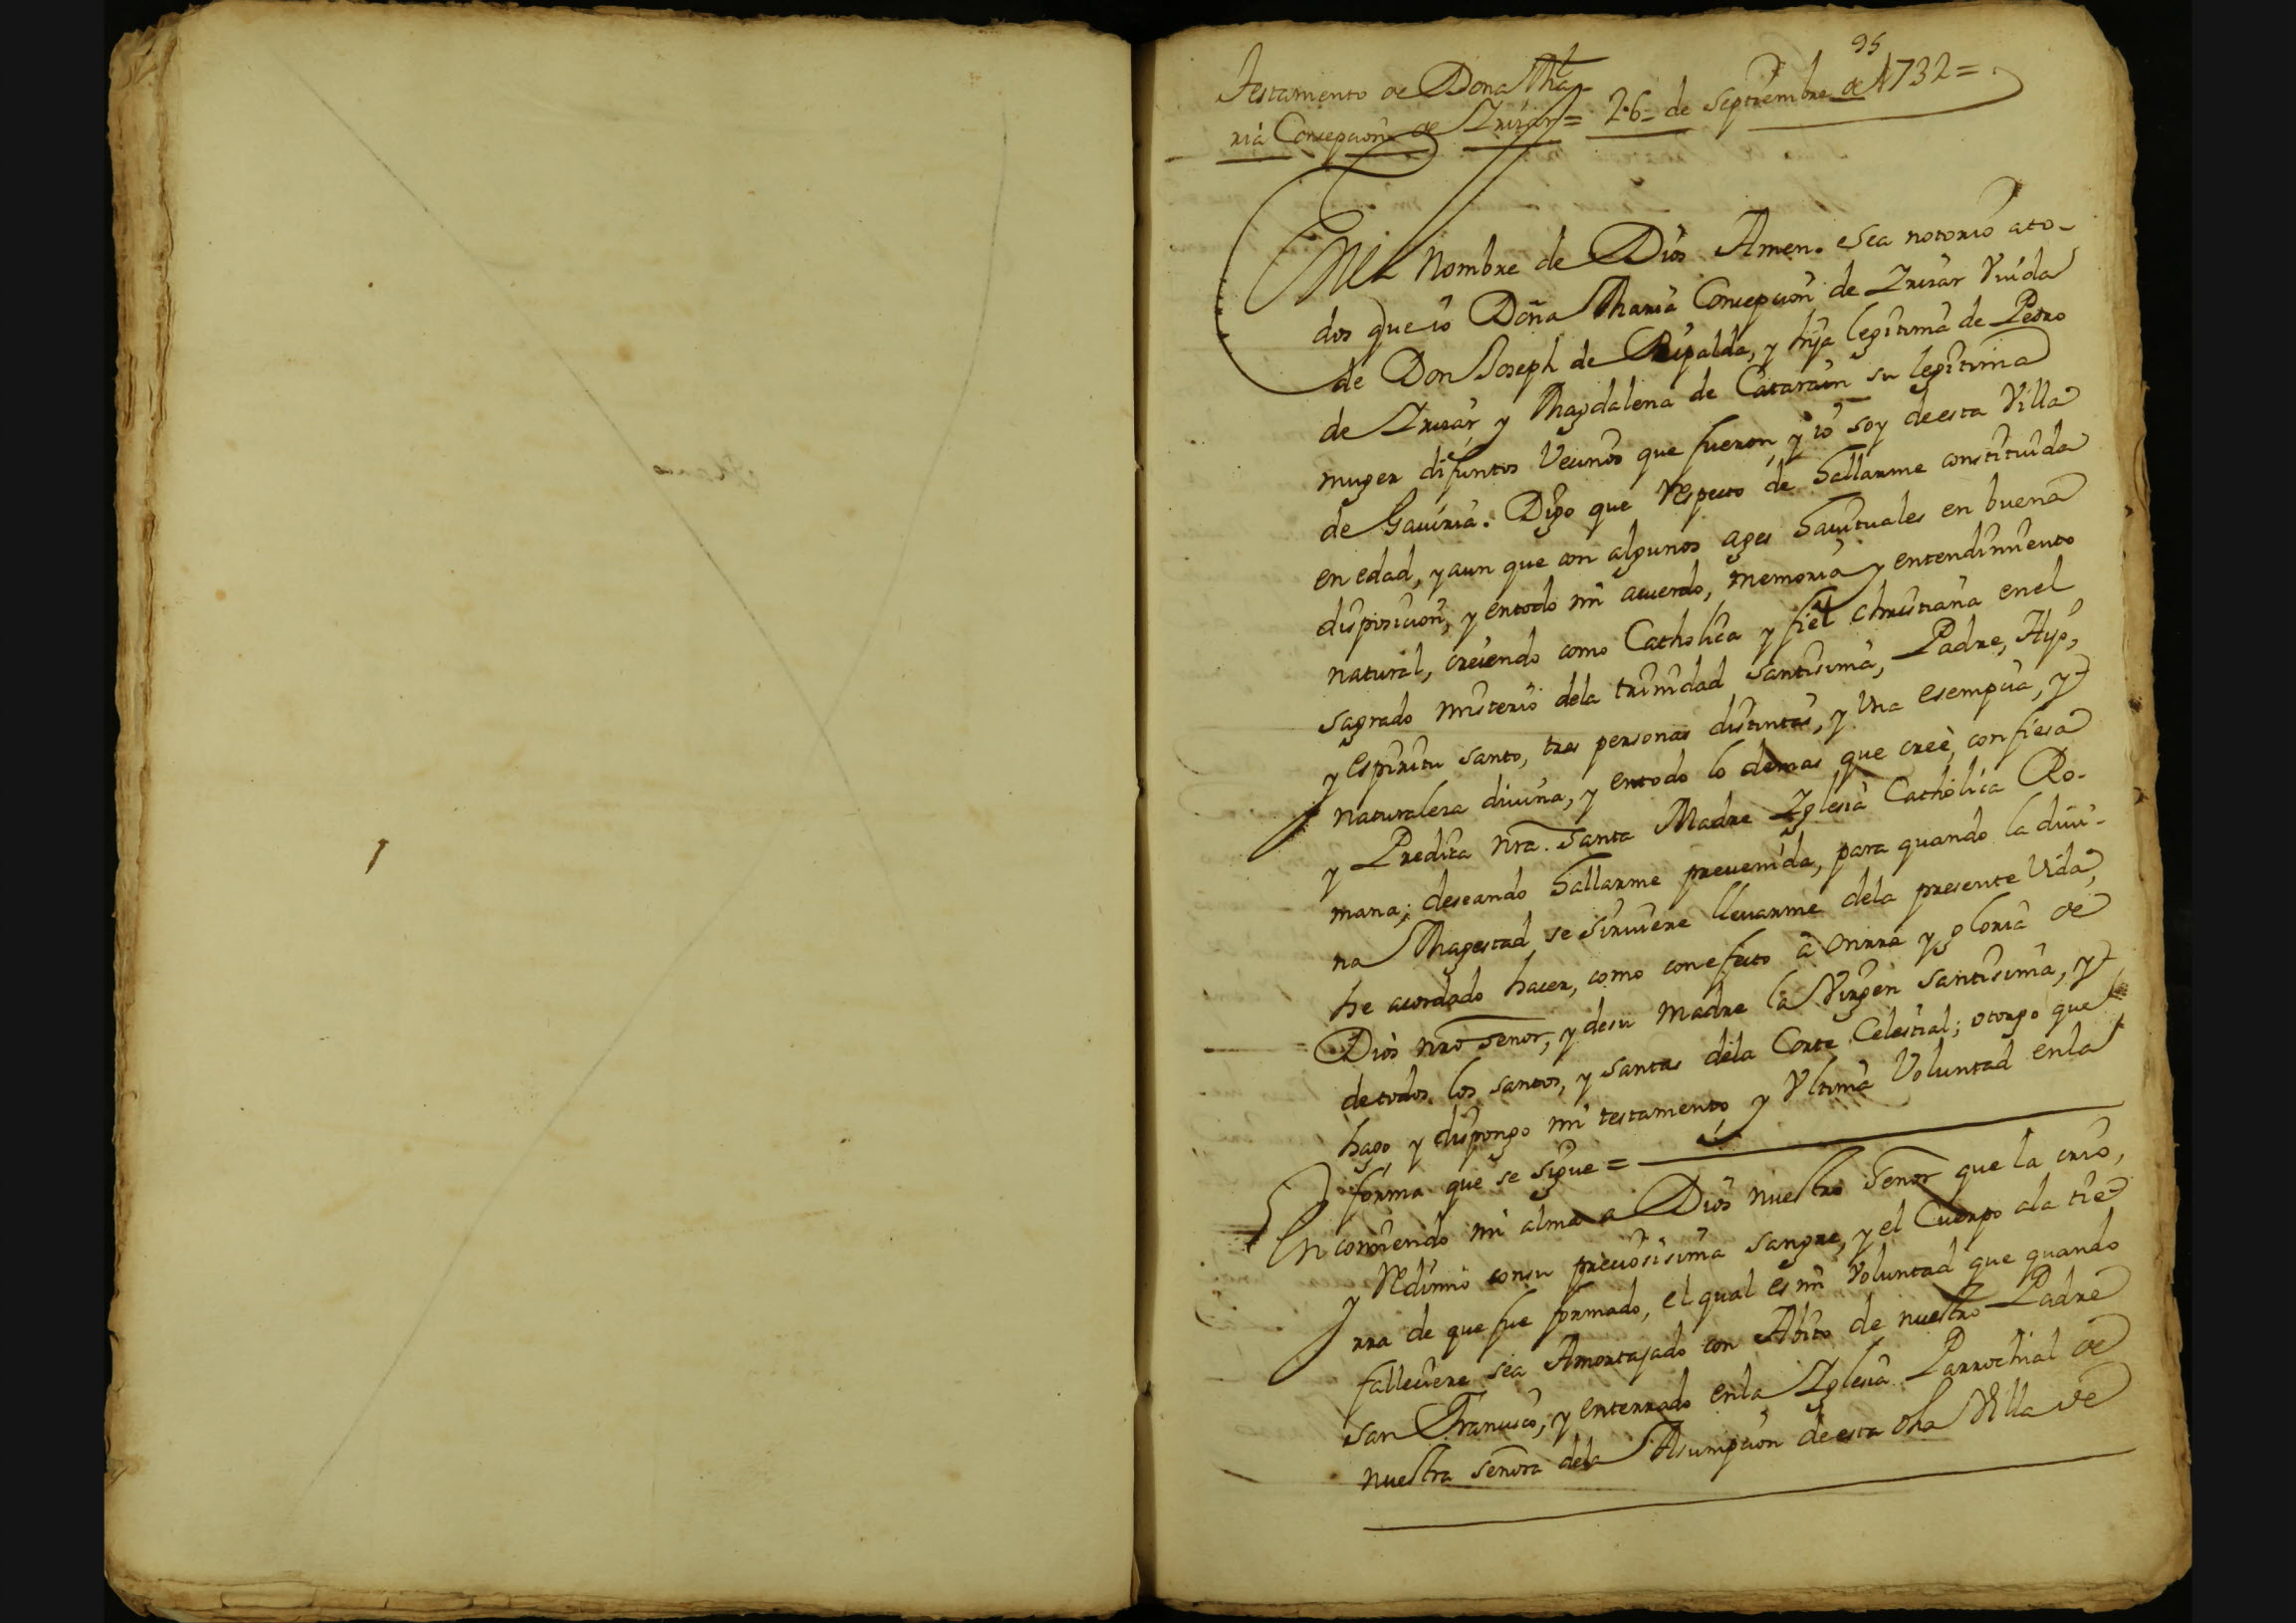 95
Testamento de Dona Ma-
ria Concepcion de Irizar = 26 = de Septiembre de 1732 =
En el Nombre de Dios Amen. Sea notorio ato-
dos que io Doña Maria Concepcion de Irizar Viuda
de Don Joseph de Ripalda, y hija legitima de Pedro
de Irizar y Magdalena de Catarain su legitima
muger difuntos Vecinos que fueron, y io soy de esta Villa
de Gauiria. Digo que respecto de hallarme constituida
en edad, y aun que con algunos ages hauituales en buena
disposicion, y entodo mi acuerdo, memoria y entendimiento
natural, creiendo como Catholica y fiel christiana en el
sagrado misterio dela trinidad santisima, Padre, Hijo,
y espiritu santo, tres personas distintas, y Una esempcia, y
naturalesa diuina, y entodo lo demas que creè, confiesa
y Predica nra. santa Madre Iglesia Catholica Ro-
mana; deseando hallarme preuenida, para quando la diui-
na Magestad se siruiere lleuarme dela presente Vida,
he acordado hacer, como con efecto à onrra y gloria de
Dios nro señor, y desu madre la Virgen santisima, y
de todos los santos, y santas dela Corte Celestial; otorgo que
hago y dispongo mi testamento, y Vltima Voluntad enla
forma que se sigue =
Encomiendo mi alma a Dios nuestro señor que la crio,
y redimio consu preciosisima sangre, y el Cuerpo ala tie-
rra de que fue formado, el qual es mi Voluntad que quando
falleciere sea Amortajado con Abito de nuestro Padre
san Francisco, y enterrado enla Iglesia Parrochial de
nuestra señora dela Asumpcion de esta dha Villa de